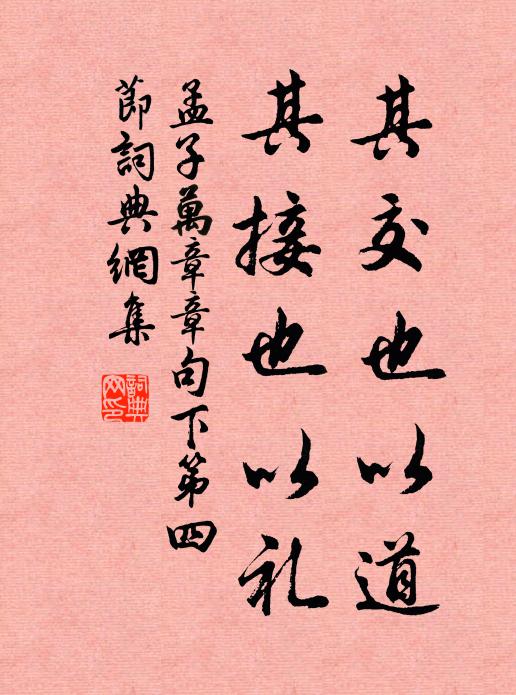 其交也以道
其接也以礼
孟子萬章章句下第四
節詞典網集
詞典網印